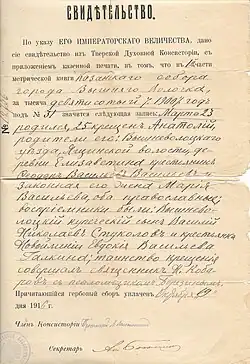 СВИДѢТЕЛЬСТВО.
По указу ЕГО ИМПЕРАТОРСКАГО ВЕЛИЧЕСТВА, дано
сіе свидѣтельство изъ Тверской Духовной Консисторіи, съ
приложеніемъ казенной печати, въ томъ, что въ 1 части
метрической книги Казанскаго собора
города Вышняго Волочка,
за тысяча девятисотый /1900/ годъ
подъ № 31 значится слѣдующая запись: Марта 23
родился, 25 крещенъ Анатолій,
родители его: Вышневолоцкаго
уѣзда, Ящинской волости, де-
ревни Елизаветина крестьянинъ
Ѳеодоръ Васильевъ Васильевъ и
законная его жена Марія
Васильева, оба православные;
воспріемники были: Вышнево-
лоцкій купеческій сынъ Василій
Николаевъ Стуколовъ и крестьянка
Евдокія Васильева
Галкина; таинство крещенія
совершалъ священникъ
съ псаломщикомъ
Причитающійся гербовый сборъ уплаченъ. Октября 19
дня 1916 г.
Членъ Консисторіи
Секретарь